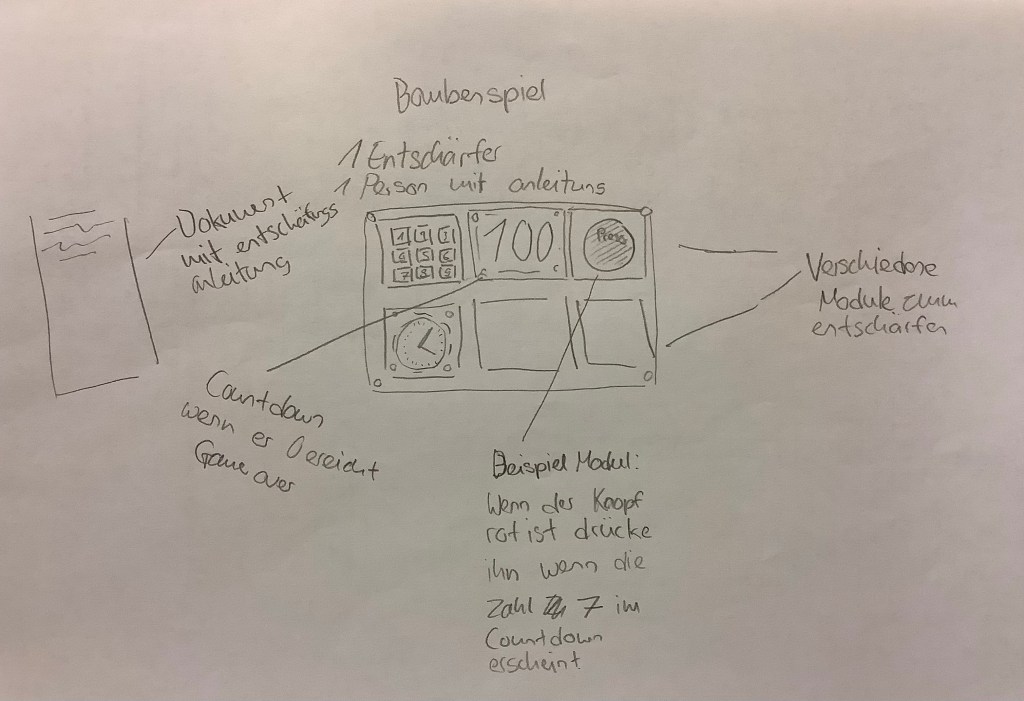 Bombenspiel
1 Entschärfer
1 Person mit anleitung
Dokument
mit entschärfungs
anleitung
1 2 3
4 5 6
7 8 9
100
Press
Verschiedene
Module zum
entschärfen
Countdown
wenn er 0 ereicht
Game over
Beispiel Modul:
Wenn der Knopf
rot ist drücke
ihn wenn die
Zahl 7 im
Countdown
erscheint